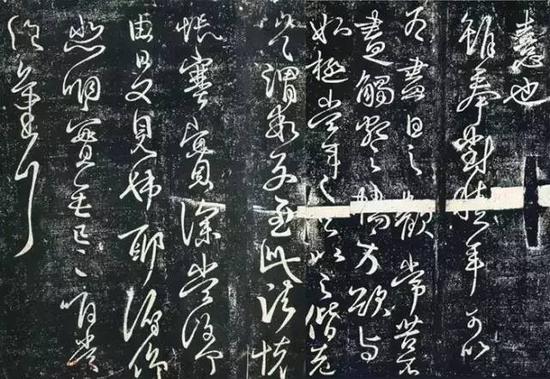 也
雖奉對積年可以
為盡日之歡常苦不
盡觸類之暢方欲与
姊極當年之疋以之偕老
豈謂乖別至此諸懷
悵塞實深當復何
由日夕見姊耶俯仰
悲咽實無已已唯當
絕氣耳